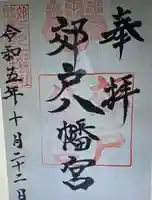 奉拝
郊戸八幡宮
令和五年十月二十二日